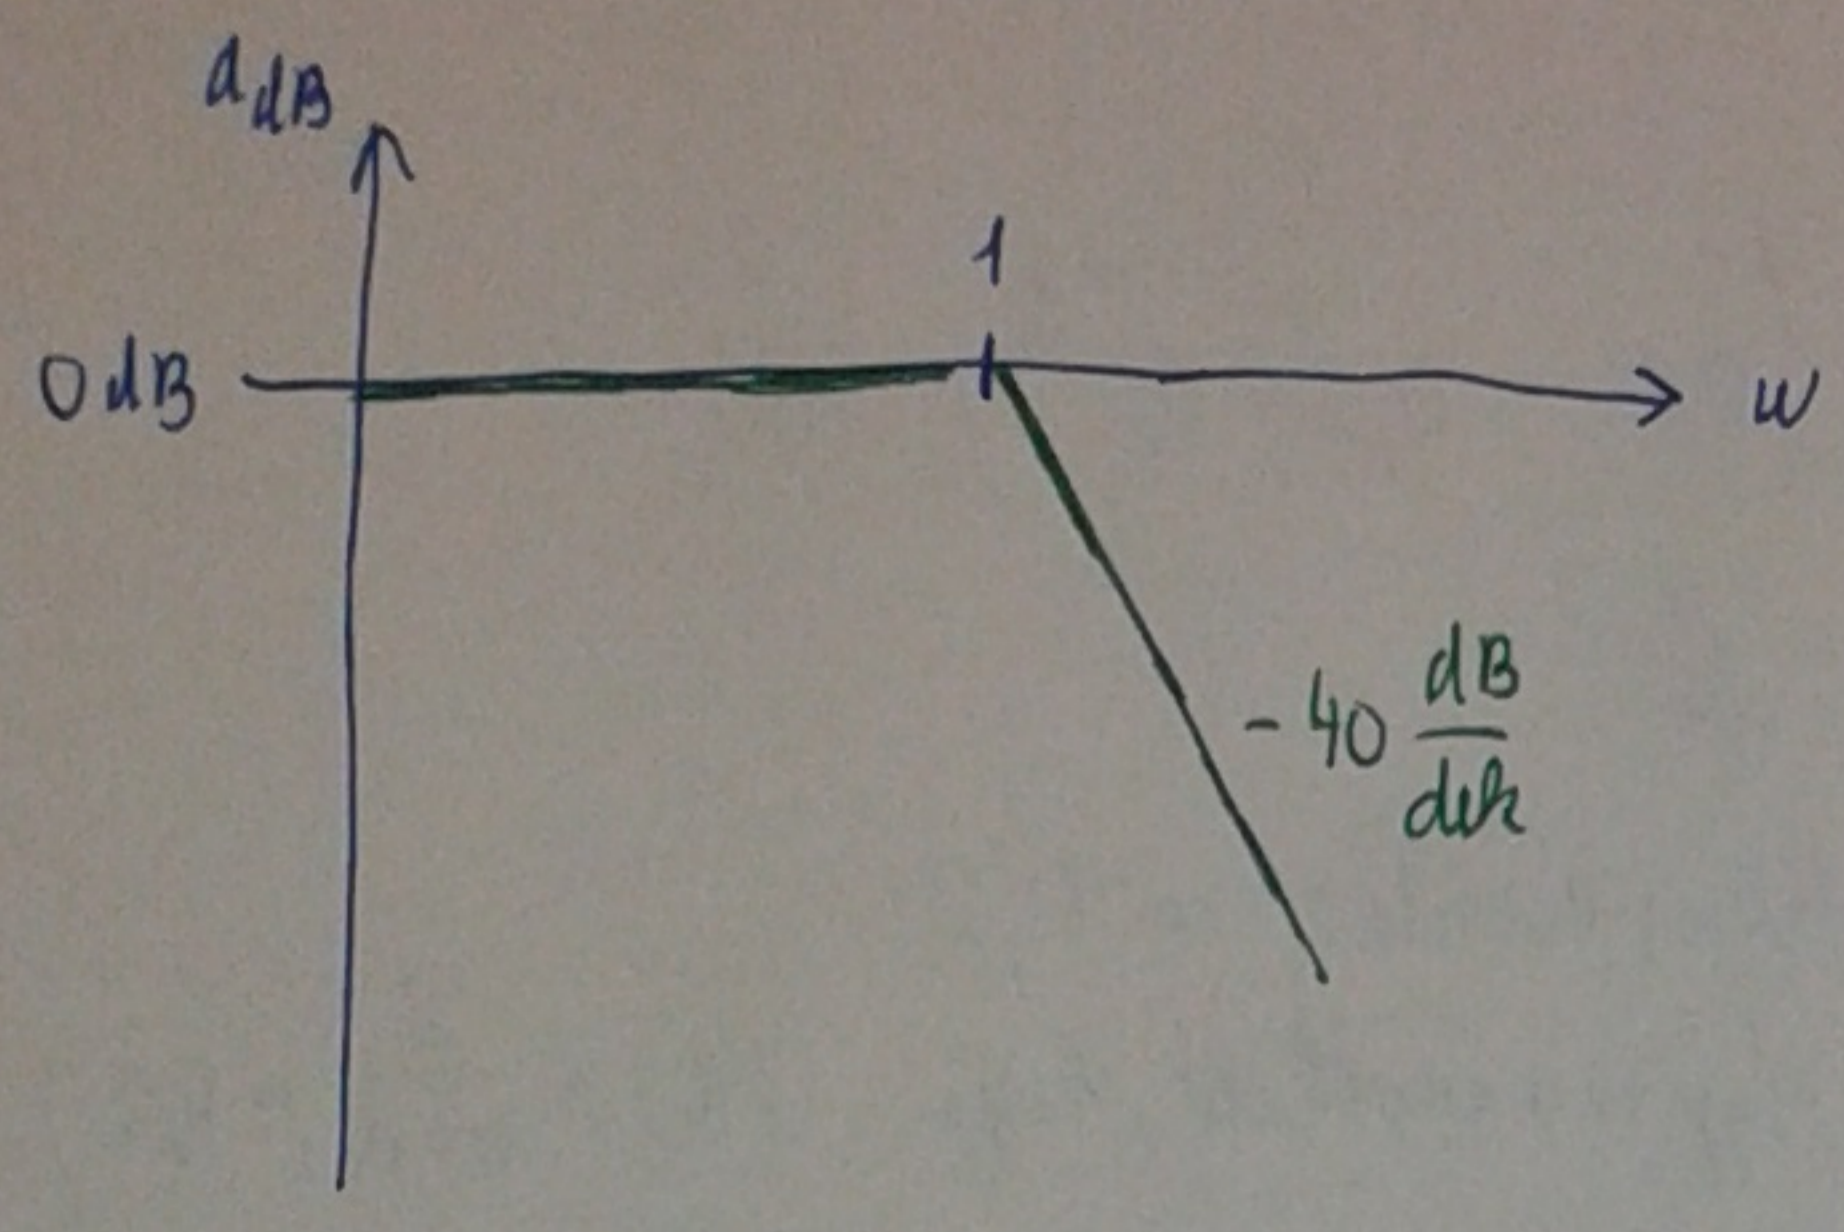 a dB
1
0 dB
w
- 40 dB
dek